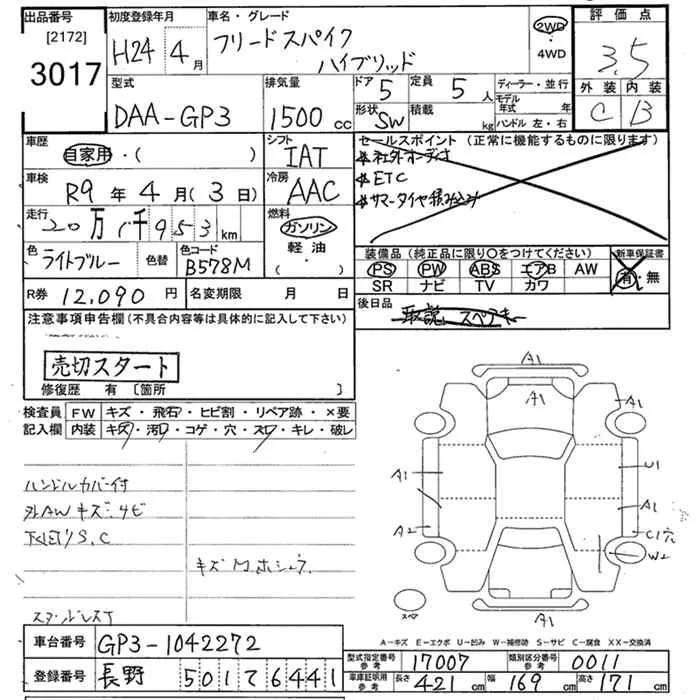 出品番号
[2172]
3017
初度登録年月
H24 4月
車名・グレード
フリードスパイク
ハイブリッド
2WD
4WD
評価点
3.5
外装 内装
C B
型式
DAA-GP3
排気量
1500 cc
ドア 5
定員 5 人
形状 SW
積載 kg
ディーラー・並行
モデル年式 年
ハンドル 左・右
車歴
自家用・( )
シフト
IAT
車検
R9年4月(3日)
冷房
AAC
走行
20万1千953km
燃料
ガソリン
軽油
( )
色
ライトブルー
色替
色コード
B578M
R券 12,090円
名変期限 月 日
セールスポイント (正常に機能するものに限ります)
*社外オーディオ
*ETC
*サマータイヤ積み込み
装備品(純正品に限り〇をつけてください)
PS PW ABS エアB AW
SR ナビ TV カワ
新車保証書
有・無
後日品
取説、スペアキー
注意事項申告欄(不具合内容等は具体的に記入して下さい)
売切スタート
修復歴 有〔箇所 〕
検査員記入欄
FW キズ・飛石・ヒビ割・リペア跡・×要
内装 キズ・汚れ・コゲ・穴・スレ・キレ・破レ
ハンドルカバー付
外AWキズ・サビ
下回りS.C
キズ
A1
A1
A1
A1
U1
A1
A2
C1穴
W2
スペア
A1
A-キズ E-エクボ U-凹み W-補修跡 S-サビ C-腐食 XX-交換済
車台番号 GP3-1042272
登録番号 長野 501 6441
型式指定番号参考 17007
類別区分番号参考 0011
車庫証明用参考 長さ 421cm 幅 169cm 高さ 171cm